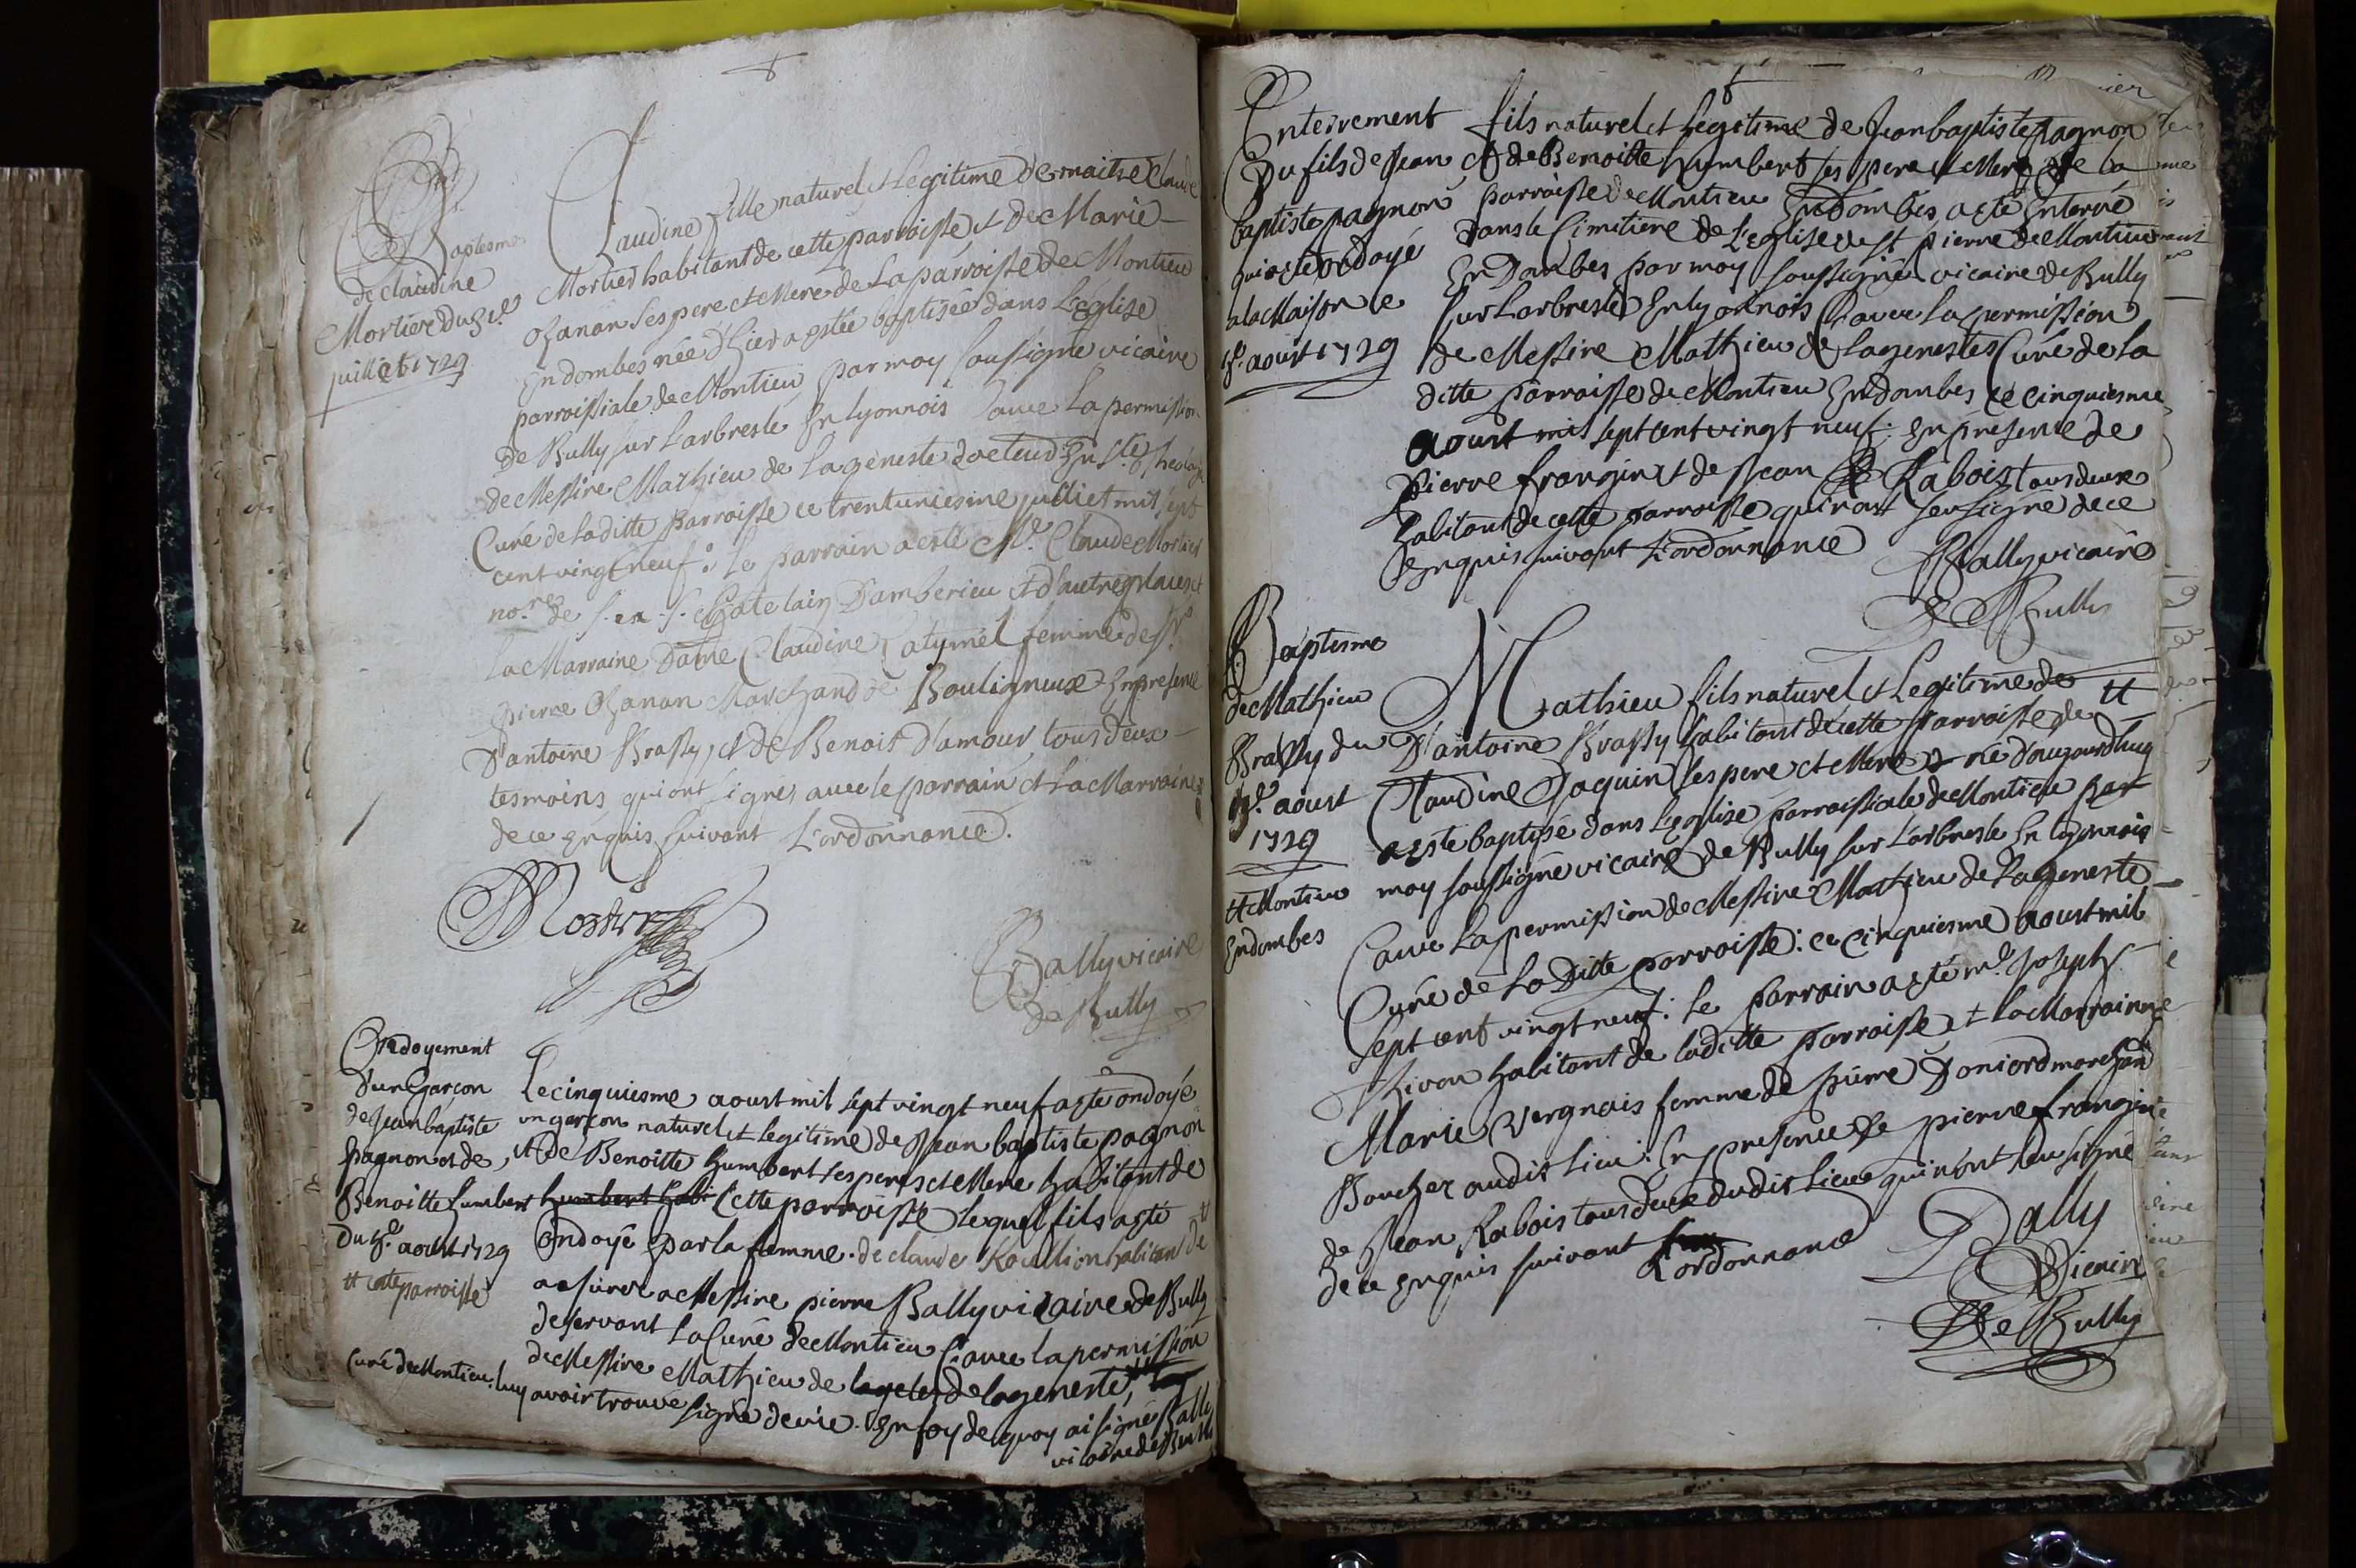 Baptesme
de claudine
Mortier du 31e
juillet 1729
Claudine fille naturel et Legitime de maitre Claude
Mortier habitant de cette parroisse et de Marie
Ozanan ses pere et Mere de La parroisse de Montieu
En dombes née d'hier a estée baptisée dans L'Eglise
parroissiale de Montieu par moy soussigné vicaire
de Bully sur Larbresle En lyonnois avec La permission
de Messire Mathieu de Lageneste docteur En Ste Theologie
Curé de laditte Parroisse ce trentuniesme juilliet mil sept
cent vingt neuf: Le parrain a esté Me. Claude Mortier
nore de s. ex. s. Chatelain D'amberieu et d'autres places et
La Marraine Dame Claudine Catymel femme de Sr
pierre Ozanan Marchand de Bouligneux En presence
D'antoine Brassy, et de Benoist D'amour tous deux
tesmoins qui ont signés avec le parrain et La Marraine
de ce Enquis suivant L'ordonnance.
Mortier
Bally vicaire
de Bully
Ondoyement
d'un Garçon
de Jean baptiste
pagnon et de
Benoitte humbert
Du 5e. aoust 1729
tt cette parroisse
Le cinquiesme aoust mil sept vingt neuf a esté ondoyé
un garçon naturel et legitime de Jean baptiste pagnon
et de Benoitte humbert ses peres et Mere habitant de
humbert habi Cette parroisse lequel fils a esté
Ondoyé par la femme de claude Roullion habitan de tt
assurer a Messire pierre Bally vicaire de Bully
deservant la Cure de Montieu avec la permission
de Messire Mathieu de lagelest de lageneste,
Curé de Montieu luy avoir trouvé signe de vie. En foy de quoy ai signé Bally
vicaire de Bully
Enterrement
Du fils de Jean
baptiste pagnon
qui a esté ondoyé
a la Maison ce
5e. aoust 1729
fils naturel et Legitime de Jean baptiste pagnon
et de Benoitte humbert ses pere et Mere de la
parroisse de Montieu En dombes a esté Enterré
dans le Cimitiere de L'eglise de st pierre de Montieu
En Dombes par moy soussigné vicaire de Bully
sur Larbresle En lyonnois avec La permission
de Messire Mathieu de Lagenestes Curé de la
ditte parroisse de Montieu En dombes ce cinquiesme
aoust mil sept cent vingt neuf: En presence de
Pierre frangin et de Jean Rabois tous deux
habitant de cette parroisse qui n'ont seu signé de ce
Enquis suivant L'ordonnance Bally vicaire
De Bully
Baptesme
de Mathieu
Brassy du
5e. aoust
1729
tt Montieu
En dombes
Mathieu fils naturel et Legitime de
D'antoine Brassy habitant de cette parroisse de tt
Claudine Jaquin ses pere et Mere né d'aujourdhuy
a esté baptisé dans l'eglise parroissiale de Montieu par
moy soussigné vicaire de Bully sur L'arbresle En lyonnois
avec La permission de Messire Mathieu de Lageneste
Curé de La Ditte parroisse: ce cinquiesme aoust mil
sept cent vingt neuf: Le parrain a esté me. Joseph
Thivon habitant de laditte parroisse et la Marraine
Marie Vergnais femme de pierre Doniord marchand
Boucher audit lieu: En presence de pierre frangin
de Jean Rabois tous deux dudit Lieu qui n'ont seu signé
de ce Enquis suivant
L'ordonnance
Bally
Vicaire
De Bully